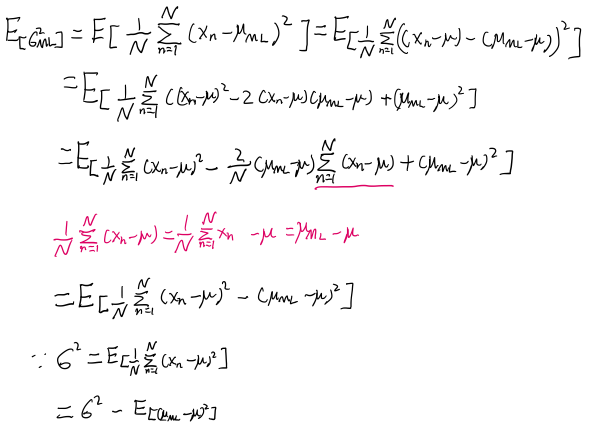 E[σ²_ML] = E[ 1/N ∑_{n=1}^{N} (x_n − μ_ML)² ] = E[ 1/N ∑_{n=1}^{N} ((x_n − μ) − (μ_ML − μ))² ]
= E[ 1/N ∑_{n=1}^{N} ((x_n − μ)² − 2(x_n − μ)(μ_ML − μ) + (μ_ML − μ)² ]
= E[ 1/N ∑_{n=1}^{N} (x_n − μ)² − 2/N (μ_ML − μ) ∑_{n=1}^{N} (x_n − μ) + (μ_ML − μ)² ]
1/N ∑_{n=1}^{N} (x_n − μ) = 1/N ∑_{n=1}^{N} x_n − μ = μ_ML − μ
= E[ 1/N ∑_{n=1}^{N} (x_n − μ)² − (μ_ML − μ)² ]
∵ σ² = E[ 1/N ∑_{n=1}^{N} (x_n − μ)² ]
= σ² − E[(μ_ML − μ)²]